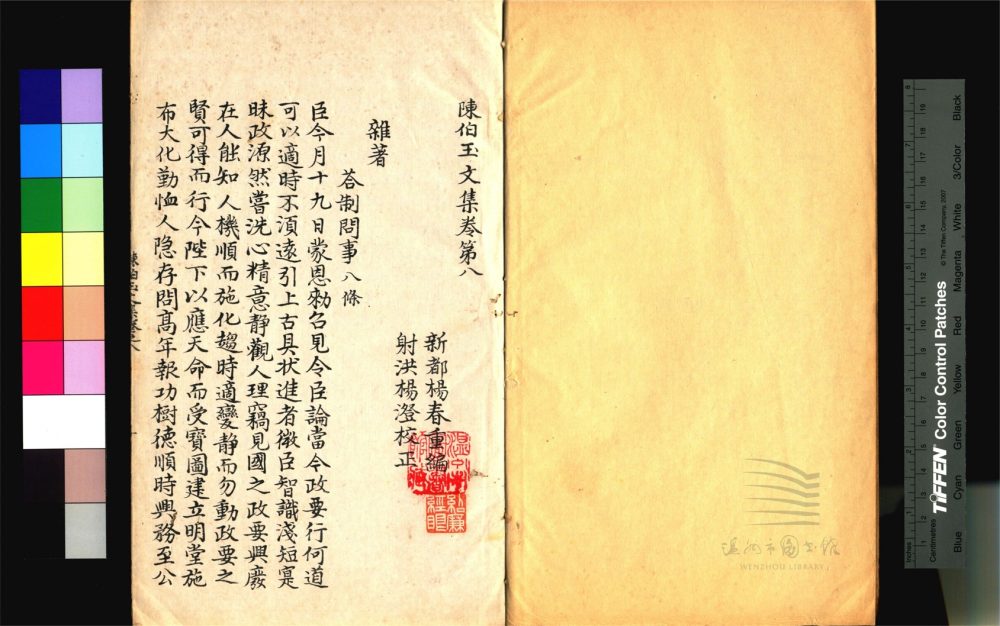 陳伯玉文集卷第八
新都楊春重編
射洪楊澄校正
雜著
荅制問事八條
臣今月十九日蒙恩勑召見令臣論當今政要行何道
可以適時不湏遠引上古具状進者微臣智識淺短寔
昧政源然嘗洗心精意静觀人理竊見國之政要興廢
在人能知人機順而施化趨時適變静而勿動政要之
賢可得而行今陛下以應天命而受寶圖建立明堂施
布大化勤恤人隐存問髙年報功樹徳順時興務至公
温州市图书馆
WENZHOU LIBRARY
TIFFEN Color Control Patches
© The Tiffen Company, 2007
Inches
Centimetres
Blue
Cyan
Green
Yellow
Red
Magenta
White
3/Color
Black